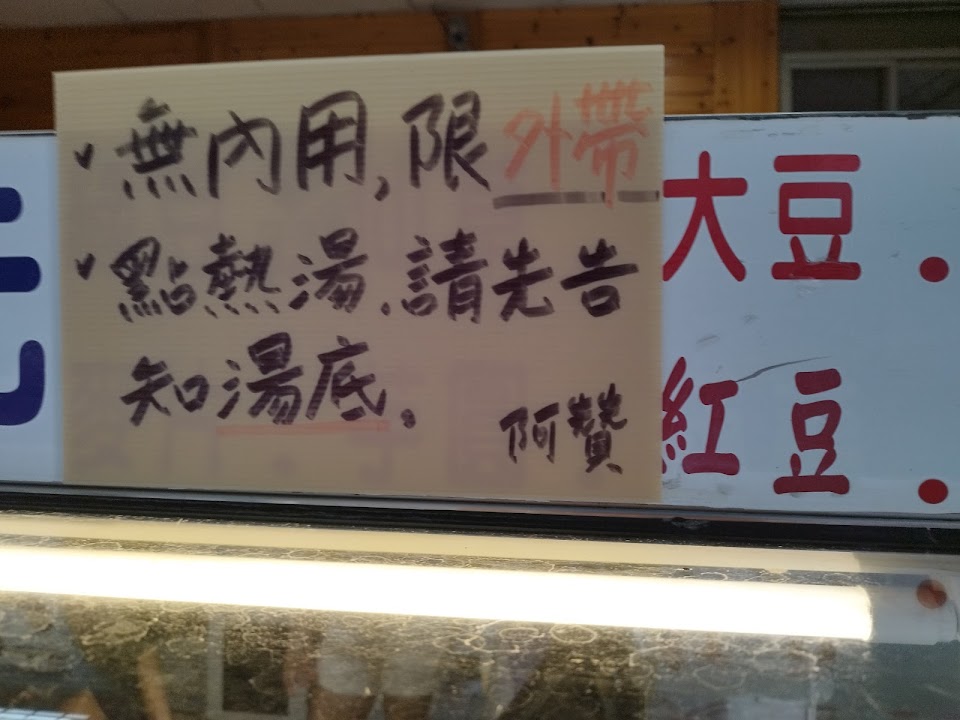 ✓無內用,限外帶
✓點熱湯.請先告
知湯底。
阿贊
大豆.
紅豆.